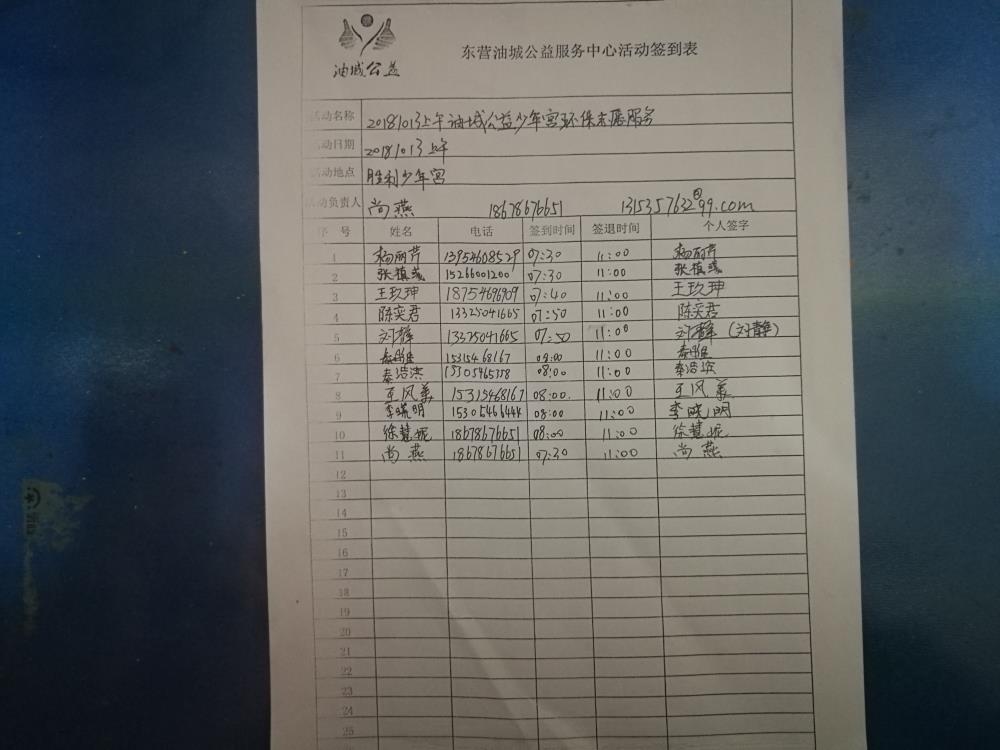 油城公益
东营油城公益服务中心活动签到表
活动名称 20181013上午油城公益少年宫环保志愿服务
活动日期 20181013上午
活动地点 胜利少年宫
活动负责人 尚燕 18678676651 1315357632@99.com
序号 姓名 电话 签到时间 签退时间 个人签字
1 杨丽芹 13954608529 07:30 11:00 杨丽芹
2 张植 15266001200 07:30 11:00 张植
3 王玖珅 18754696909 07:40 11:00 王玖珅
4 陈奕君 13325041665 07:50 11:00 陈奕君
5 刘静 13325041665 07:50 11:00 刘静(刘静)
6 秦 15315468167 08:00 11:00 秦
7 秦浩洪 08:00 11:00 秦浩洪
8 王风美 15315468167 08:00. 11:00 王风美
9 李晓明 15305466444 08:00 11:00 李晓明
10 徐慧妮 18678676651 08:00 11:00 徐慧妮
11 尚燕 18678676651 07:30 11:00 尚燕
12
13
14
15
16
17
18
19
20
21
22
23
24
25